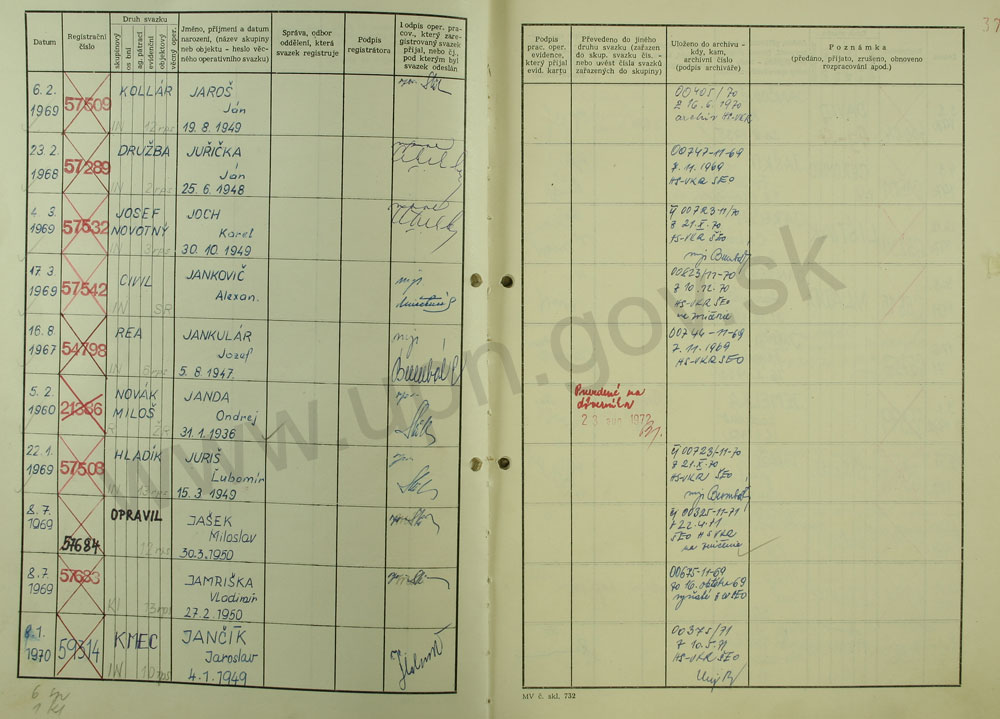 37
Datum
Registrační číslo
Druh svazku
skupinový
os bní
ag. pátrací
evidenční
objektový
věcný oper.
Jméno, příjmení a datum
narození, (název skupiny
neb objektu - heslo věc-
ného operativního svazku)
Správa, odbor
oddělení, která
svazek registruje
Podpis
registrátora
Podpis oper. prac-
cov., který zare-
gistrovaný svazek
přijal, nebo čj.,
pod kterým byl
svazek odeslán
Podpis
prac. oper.
evidence,
který přijal
evid. kartu
Převedeno do jiného
druhu svazku (zařazen
do skup. svazku čís. -
nebo uvést čísla svazků
zařazených do skupiny)
Uloženo do archivu -
kdy, kam,
archivní číslo
(podpis archiváře)
Poznámka
(předáno, přijato, zrušeno, obnoveno
rozpracování apod.)
6. 2. 1969 57509 KOLLÁR JAROŠ
Ján
IN 12 rps 19. 8. 1949
00405/70
z 16. 6. 1970
archiv HS-VKR
23. 2. 1968 57289 DRUŽBA JUŘIČKA
Ján
IN 2 rps 25. 6. 1948
00747-11-69
7. 11. 1969
HS-VKR ŠEO
4 3. 1969 57532 JOSEF NOVOTNÝ JOCH
Karel
IN 3 rps 30. 10. 1949
čj 00723-11/70
z 21. X. 70
HS-VKR ŠEO
mjr
17. 3 1969 57542 CIVIL JANKOVIČ
Alexan.
IN SR
mjr
00623/11-70
z 10. 12. 70
HS-VKR ŠEO
na zničenie
16. 8. 1967 54798 REA JANKULÁR
Jozef
IN 6 rps 5. 8. 1947.
mjr
00746-11-69
7. 11. 1969
HS-VKR ŠEO
5. 2. 1960 21386 NOVÁK MILOŠ JANDA
Ondrej
31. 1. 1936
Prevedené na
dôverníka
23 1972
22. 1. 1969 57508 HLADÍK JURIŠ
Ľubomír
IN 13 rps 15. 3. 1949
čj 00723/11-70
z 21. X. 70
HS-VKR ŠEO
mjr
8. 7. 1969 57684 OPRAVIL JAŠEK
Miloslav
12 rps 30. 3. 1950
čj 00325-11-71
z 22. 4. 71
ŠEO HSVKR
na zničenie
8. 7. 1969 57683 JAMRIŠKA
Vladimír
KI 13 rps 27. 2. 1950
00675-11-69
zo 16. októbra 69
vyňatá z ŠEO
8. 1. 1970 59314 KMEC JANČÍK
Jaroslav
IN 10 rps 4. 1. 1949
00375/71
z 10. 5. 71
HS-VKR ŠEO
1 KI
MV č. skl. 732
www.upn.gov.sk